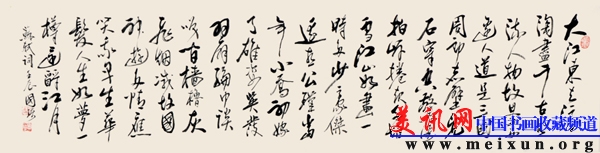 大江東去浪
淘盡千古風
流人物故壘西
邊人道是三國
周郎赤壁亂
石穿空驚濤
拍岸捲起千堆
雪江山如畫一
時多少豪傑
遙想公瑾當
年小喬初嫁
了雄姿英發
羽扇綸巾談
笑間檣櫓灰
飛煙滅故國
神遊多情應
笑我早生華
髮人生如夢一
樽還酹江月
蘇軾詞壬辰國
美讯网
中国书画收藏频道
www.meixun.org